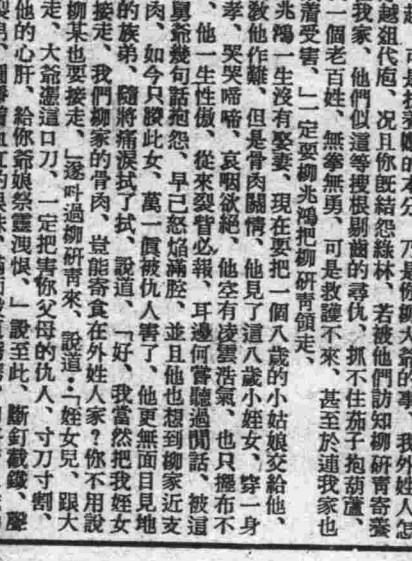 的本分、乃是你柳大爺的事、我外姓人怎
越俎代庖、况且你旣結怨綠林、若被他們訪知柳研青寄養
我家、他們似這等搜根剔齒的尋仇、抓不住茄子抱葫蘆、
一個老百姓、無拳無勇、可是救護不來、甚至於連我家也
着受害、」一定要柳兆鴻把柳研青領走、
兆鴻一生沒有娶妻、現在要把一個八歲的小姑娘交給他、
敎他作難、但是骨肉關情、他見了這八歲小姪女、穿一身
孝、哭哭啼啼、哀咽欲絕、他空有凌雲浩氣、也只擺布不
、他一生性傲、從來裂眥必報、耳邊何嘗聽過閒話、被這
舅爺幾句話抱怨、早已怒焰滿腔、並且他也想到柳家近支
肉、如今只賸此女、萬一眞被仇人害了、他更無面目見地
的族弟、隨將痛淚拭了拭、說道、「好、我當然把我姪女
接走、我們柳家的骨肉、豈能寄食在外姓人家?你不用說
柳某也要接走、」遂呌過柳研青來、說道:「姪女兒、跟大
走、大爺憑這口刀、一定把害你父母的仇人、寸刀寸割、
他的心肝、給你爺娘祭靈洩恨、」說至此、斷釘截鐵、聲